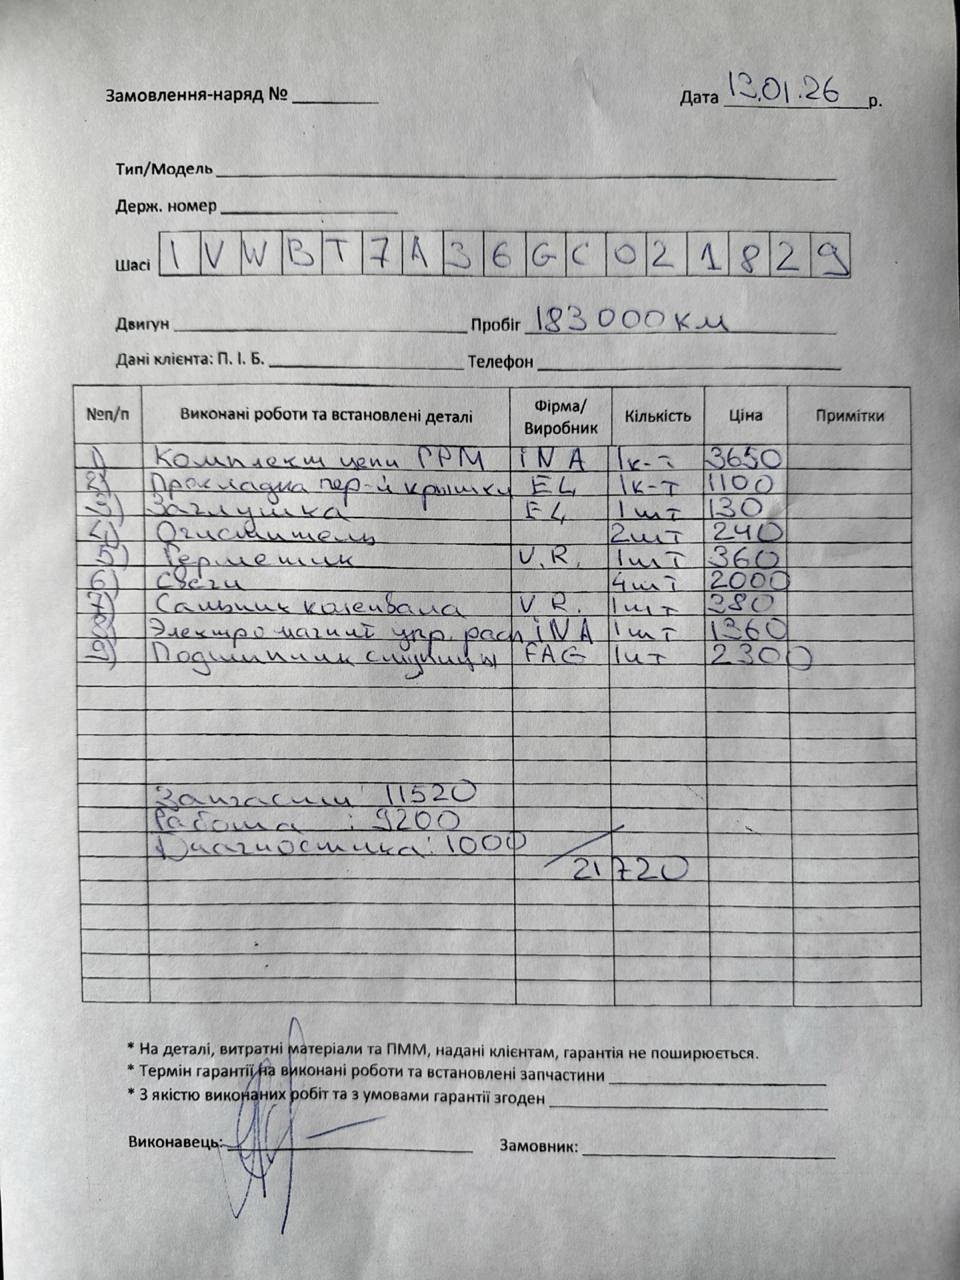 Замовлення-наряд № ________ Дата 13.01.26 р.
Тип/Модель
Держ. номер
Шасі 1VWBT7A36GC021829
Двигун Пробіг 183000 км
Дані клієнта: П. І. Б. Телефон
№п/п Виконані роботи та встановлені деталі Фірма/Виробник Кількість Ціна Примітки
1) Комплект цепи ГРМ INA 1к-т 3650
2) Прокладка пер-й крышки EL 1к-т 1100
3) Заглушка EL 1шт 130
4) Очиститель 2шт 240
5) Герметик V.R. 1шт 360
6) Свечи 4шт 2000
7) Сальник коленвала V.R. 1шт 380
8) Электромагнит упр. расп INA 1шт 1360
9) Подшипник ступицы FAG 1шт 2300
Запчасти: 11520
Работа : 9200
Диагностика: 1000
21720
* На деталі, витратні матеріали та ПММ, надані клієнтам, гарантія не поширюється.
* Термін гарантії на виконані роботи та встановлені запчастини
* З якістю виконаних робіт та з умовами гарантії згоден
Виконавець: Замовник: